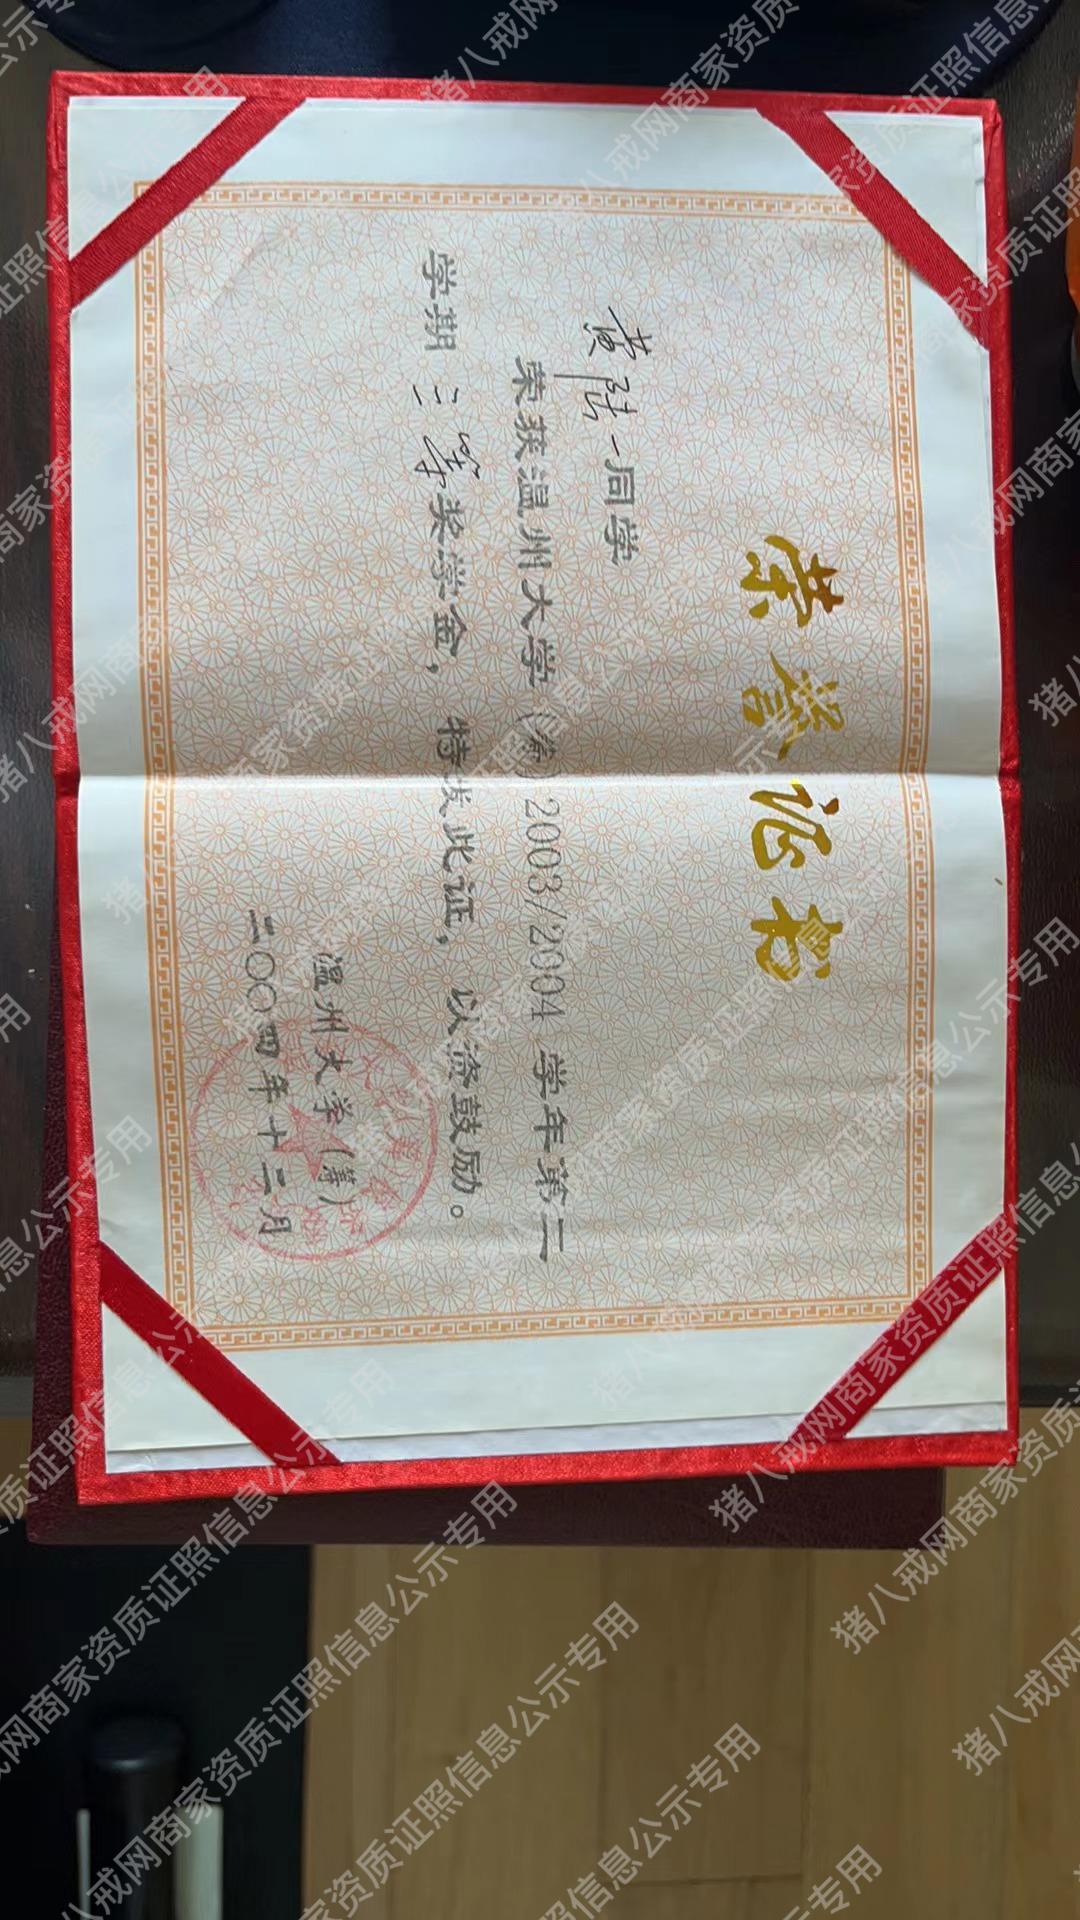 荣誉证书
黄陆一同学
荣获温州大学（筹）2003/2004 学年第二
学期三等奖学金，特发此证，以资鼓励。
温州大学（筹）
二〇〇四年十二月
猪八戒网商家资质证照信息公示专用